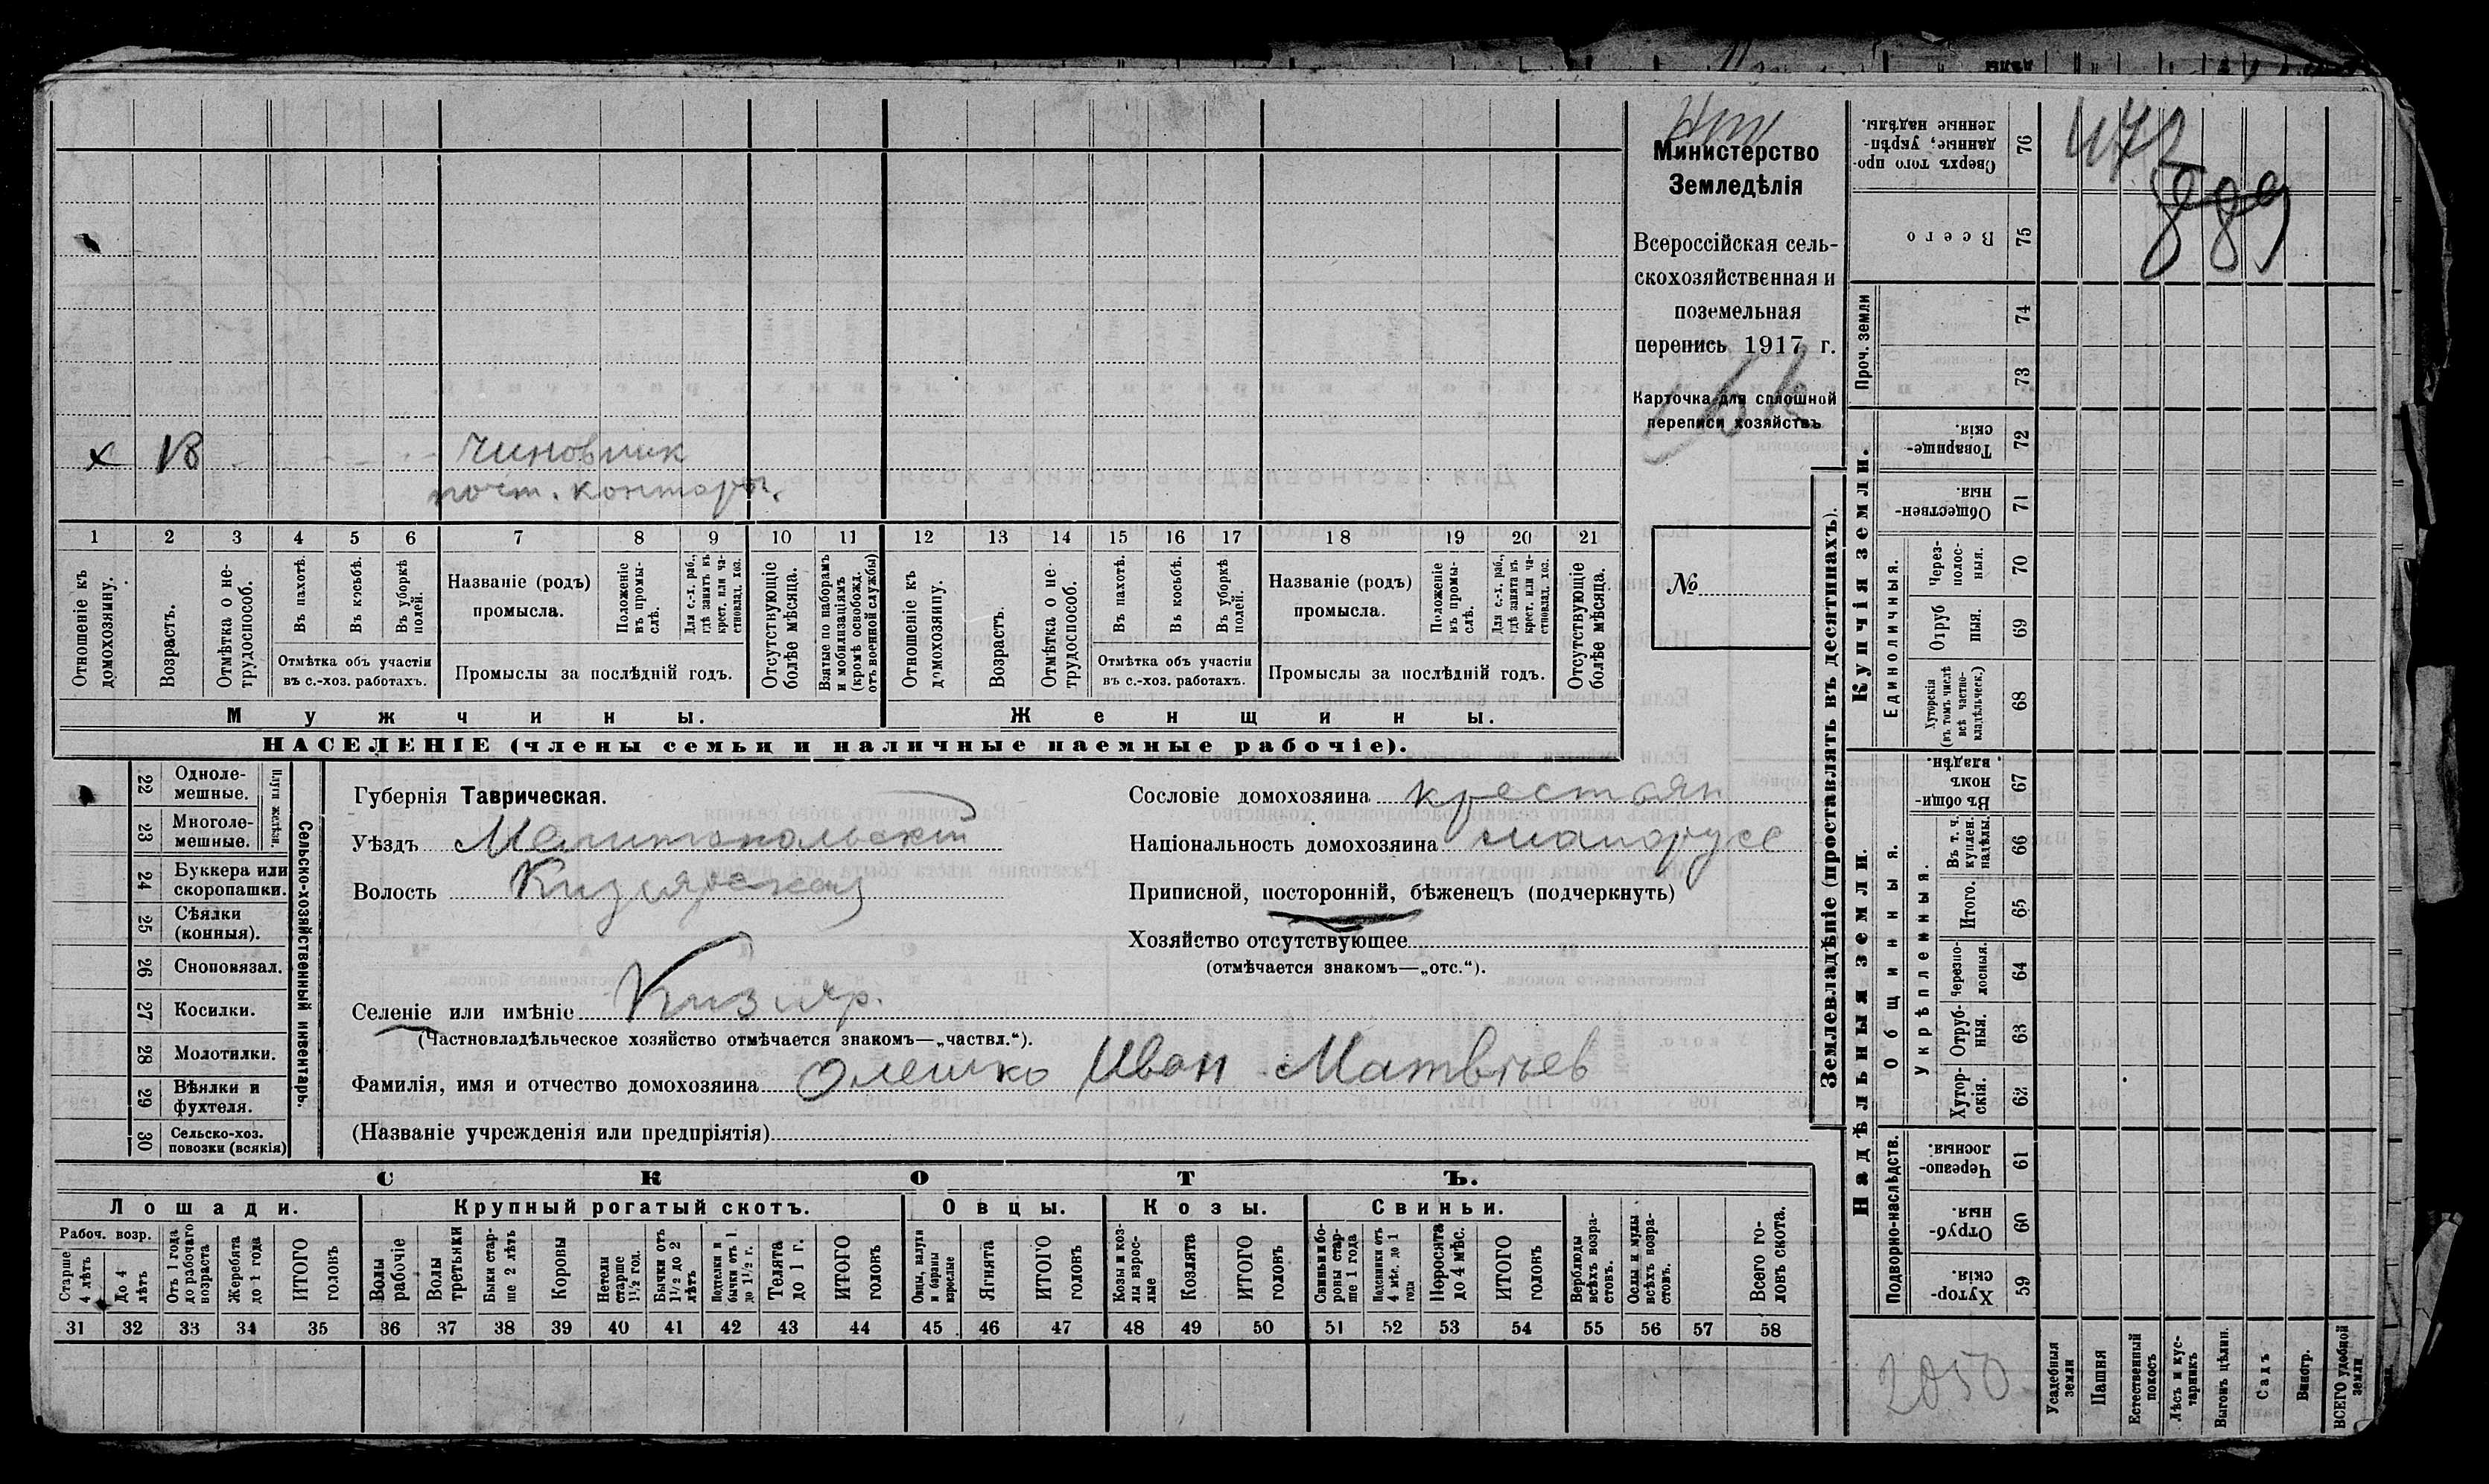 Министерство
Земледѣлія
Всероссійская сель-
скохозяйственная и
поземельная
перепись 1917 г.
Карточка для сплошной
переписи хозяйствъ
№
472
889
х 18 чиновник
почт. конторы.
1 2 3 4 5 6 7 8 9 10 11 12 13 14 15 16 17 18 19 20 21
Отношеніе къ домохозяину.
Возрастъ.
Отмѣтка о не-трудоспособ.
Въ пахотѣ.
Въ косьбѣ.
Въ уборкѣ полей.
Отмѣтка объ участіи
въ с.-хоз. работахъ.
Названіе (родъ)
промысла.
Положеніе въ промы-слѣ.
Для с.-х. раб., гдѣ занятъ въ крест. или ча-стновлад. хоз.
Промыслы за послѣдній годъ.
Отсутствующіе болѣе мѣсяца.
Взятые по наборамъ и мобилизаціямъ (кромѣ освобожд. отъ военной службы)
Отношеніе къ домохозяину.
Возрастъ.
Отмѣтка о не-трудоспособ.
Въ пахотѣ.
Въ косьбѣ.
Въ уборкѣ полей.
Отмѣтка объ участіи
въ с.-хоз. работахъ.
Названіе (родъ)
промысла.
Положеніе въ промы-слѣ.
Для с.-х. раб., гдѣ занята въ крест. или ча-стновлад. хоз.
Промыслы за послѣдній годъ.
Отсутствующіе болѣе мѣсяца.
Мужчины. Женщины.
НАСЕЛЕНІЕ (члены семьи и наличные наемные рабочіе).
Сельско-хозяйственный инвентарь.
Плуги желѣзн.
22 Однолемешные.
23 Многолемешные.
24 Буккера или скоропашки.
25 Сѣялки (конныя).
26 Сноповязал.
27 Косилки.
28 Молотилки.
29 Вѣялки и фухтеля.
30 Сельско-хоз. повозки (всякія)
Губернія Таврическая.
Уѣздъ Мелитопольскій
Волость Кизиярская
Сословіе домохозяина крестьян
Національность домохозяина малорусс
Приписной, посторонній, бѣженецъ (подчеркнуть)
Хозяйство отсутствующее
(отмѣчается знакомъ—„отс.“).
Селеніе или имѣніе Кизияр.
(Частновладѣльческое хозяйство отмѣчается знакомъ—„частвл.“).
Фамилія, имя и отчество домохозяина Олешко Иван Матвѣев
(Названіе учрежденія или предпріятія)
СКОТЪ.
Лошади. Крупный рогатый скотъ. Овцы. Козы. Свиньи.
Рабоч. возр.
Старше 4 лѣтъ
До 4 лѣтъ
Отъ 1 года до рабочаго возраста
Жеребята до 1 года
ИТОГО головъ
Волы рабочіе
Волы третьяки
Быки стар-ше 2 лѣтъ
Коровы
Нетели старше 1½ год.
Бычки отъ 1½ до 2 лѣтъ
Подтелки и бычки отъ 1 до 1½ г.
Телята до 1 г.
ИТОГО головъ
Овцы, валухи и бараны взрослые
Ягнята
ИТОГО головъ
Козы и коз-лы взрос-лые
Козлята
ИТОГО головъ
Свиньи и бо-ровы стар-ше 1 года
Подсвинки отъ 4 мѣс. до 1 года
Поросята до 4 мѣс.
ИТОГО головъ
Верблюды всѣхъ возра-стовъ.
Ослы и мулы всѣхъ возра-стовъ.
Всего го-ловъ скота.
31 32 33 34 35 36 37 38 39 40 41 42 43 44 45 46 47 48 49 50 51 52 53 54 55 56 57 58
Землевладѣніе (проставлять въ десятинахъ).
76 Сверхъ того про-данные, укрѣп-ленные надѣлы.
75 Всего
Проч. земли
74
73
Купчія земли.
72 Товарище-скія.
71 Обществен-ныя.
Единоличныя.
70 Черезполосныя.
69 Отрубныя.
68 Хуторскія (въ томъ числѣ всѣ частно-владѣльческ.)
Надѣльныя земли.
Общинныя.
67 Въ общинномъ владѣн.
Укрѣпленныя.
66 Въ т. ч. куплен. надѣлы.
65 Итого.
64 Черезполосныя.
63 Отруб-ныя.
62 Хутор-скія.
Подворно-наслѣдств.
61 Черезполосныя.
60 Отруб-ныя.
59 Хутор-скія.
2050
Усадебныя земли
Пашня
Естественный покосъ
Лѣсъ и кус-тарникъ
Выгонъ цѣлин.
Садъ
Виногр.
ВСЕГО удобной земли